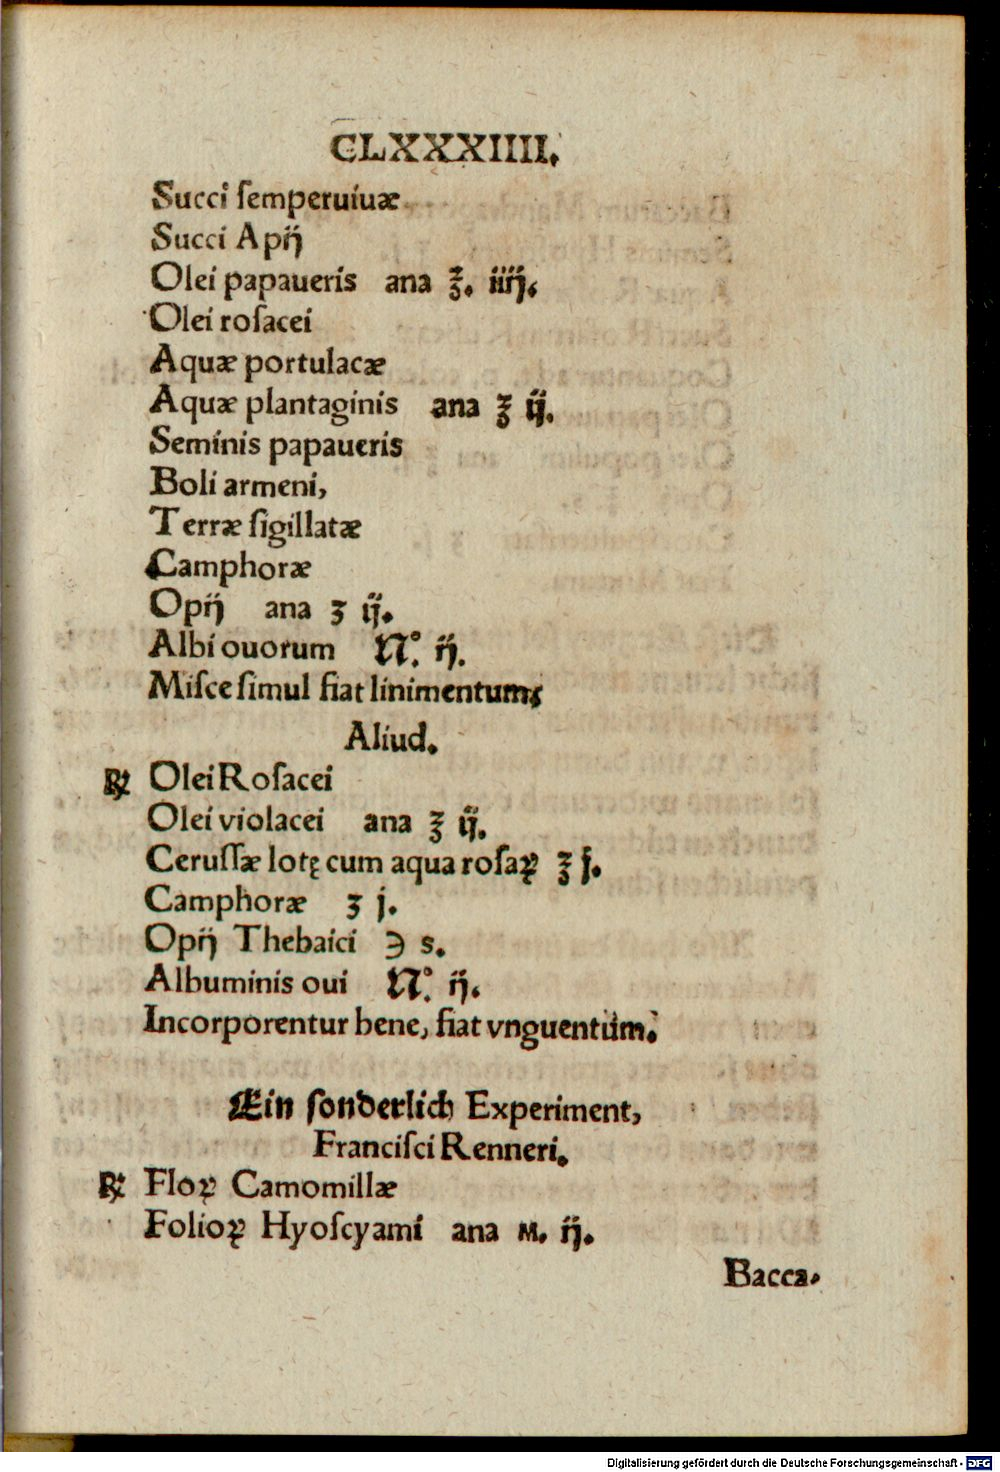 CLXXXIIII.
Succi ſemperuiuæ
Succi Apij
Olei papaueris ana ℥. iiij.
Olei roſacei
Aquæ portulacæ
Aquæ plantaginis ana ℥ ij.
Seminis papaueris
Boli armeni,
Terræ ſigillatæ
Camphoræ
Opij ana ʒ ij.
Albi ouorum N.° ij.
Miſce ſimul fiat linimentum,
Aliud.
℞ Olei Roſacei
Olei violacei ana ℥ ij.
Ceruſſæ lotę cum aqua roſaꝝ ℥ j.
Camphoræ ʒ j.
Opij Thebaici ℈ s.
Albuminis oui N.° ij.
Incorporentur bene, fiat vnguentum.
Ein ſonderlich Experiment,
Franciſci Renneri.
℞ Floꝝ Camomillæ
Folioꝝ Hyoſcyami ana M. ij.
Bacca-
Digitalisierung gefördert durch die Deutsche Forschungsgemeinschaft - DFG